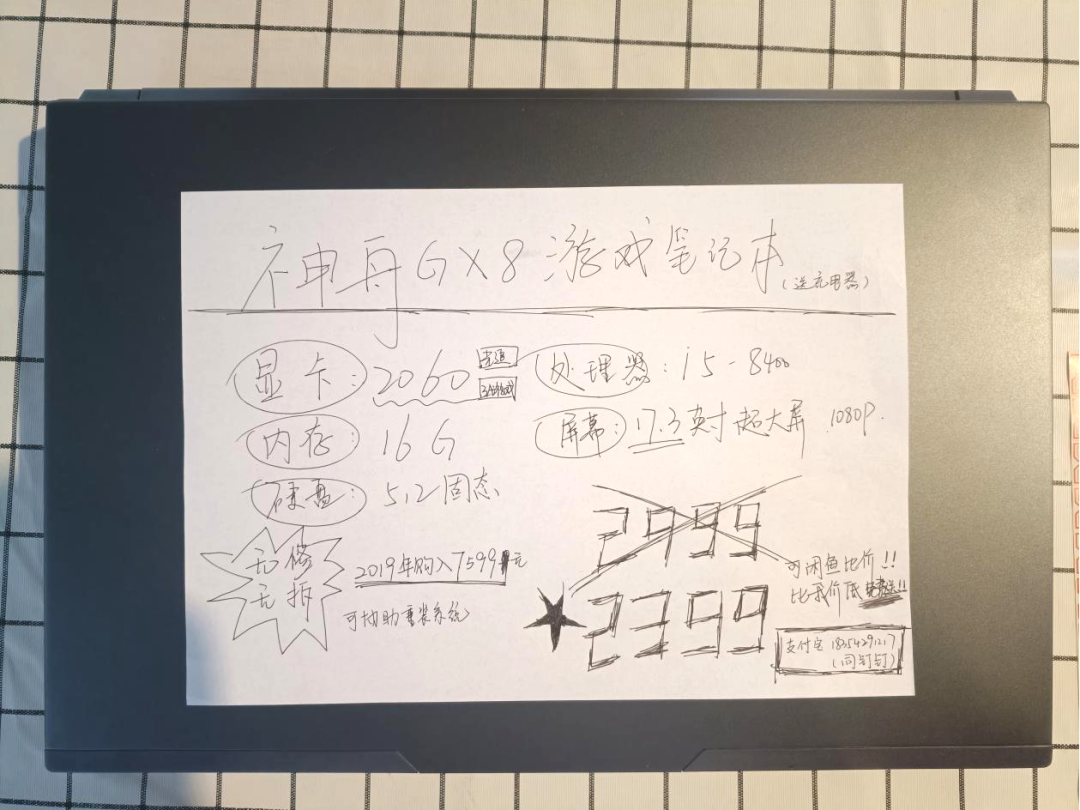 神舟GX8游戏笔记本(送充电器)
显卡:2060
处理器:i5-8400
内存:16G
屏幕:17.3英寸超大屏 1080P.
硬盘:512固态
2999
无修
无拆
2019年购入7599元
可协助重装系统
可闲鱼比价!!
比我价低!!
2399
支付宝 18354291217
(同钉钉)